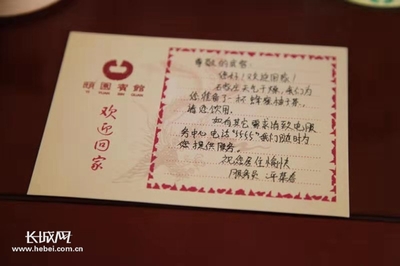 頤園賓館
YI YUAN BIN GUAN
欢迎回家
尊敬的宾客:
您好!欢迎回家!
石家庄天气干燥,我们为
您准备了一杯蜂蜜柚子茶,
请您饮用。
如有其它需求请致电服
务中心电话"5555"我们随时为
您提供服务。
祝您居住愉快
服务员
长城网
www.hebei.com.cn